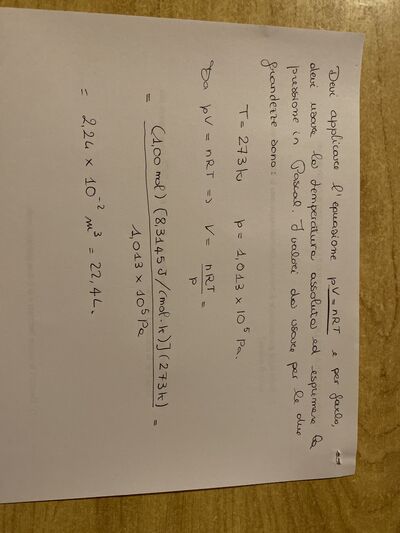 Devi applicare l'equazione pV = nRT e per farlo,
devi usare la temperatura assoluta ed esprimere la
pressione in Pascal. I valori da usare per le due
grandezze sono:
T = 273 k p = 1,013 × 10⁵ Pa.
Da pV = nRT => V = nRT/p =
= (1,00 mol) (8,3145 J/(mol·k)] (273 k) / 1,013 × 10⁵ Pa =
= 2,24 × 10⁻² m³ = 22,4 L.